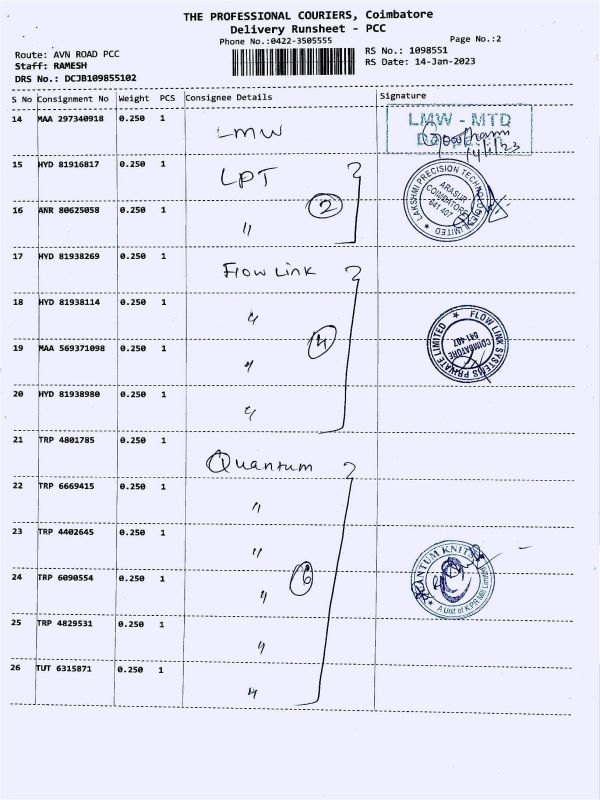 THE PROFESSIONAL COURIERS, Coimbatore
Delivery Runsheet - PCC
Phone No.:0422-3505555
Page No.:2
Route: AVN ROAD PCC
Staff: RAMESH
DRS No.: DCJB109855102
RS No.: 1098551
RS Date: 14-Jan-2023
S No Consignment No Weight PCS Consignee Details Signature
14 MAA 297340918 0.250 1 LMW
LMW - MTD
14/1/23
15 HYD 81916817 0.250 1 LPT
16 ANR 80625058 0.250 1 "
2
LAKSHMI PRECISION TECHNOLOGIES LIMITED
ARASUR
COIMBATORE
641 407
17 HYD 81938269 0.250 1 Flow Link
18 HYD 81938114 0.250 1 "
19 MAA 569371098 0.250 1 "
20 HYD 81938980 0.250 1 "
4
FLOW LINK SYSTEMS PRIVATE LIMITED
COIMBATORE
641 407
21 TRP 4801785 0.250 1 Quantum
22 TRP 6669415 0.250 1 "
23 TRP 4402645 0.250 1 "
24 TRP 6090554 0.250 1 "
25 TRP 4829531 0.250 1 "
26 TUT 6315871 0.250 1 "
6
QUANTUM KNITS
A Unit of KPR Mill Limited